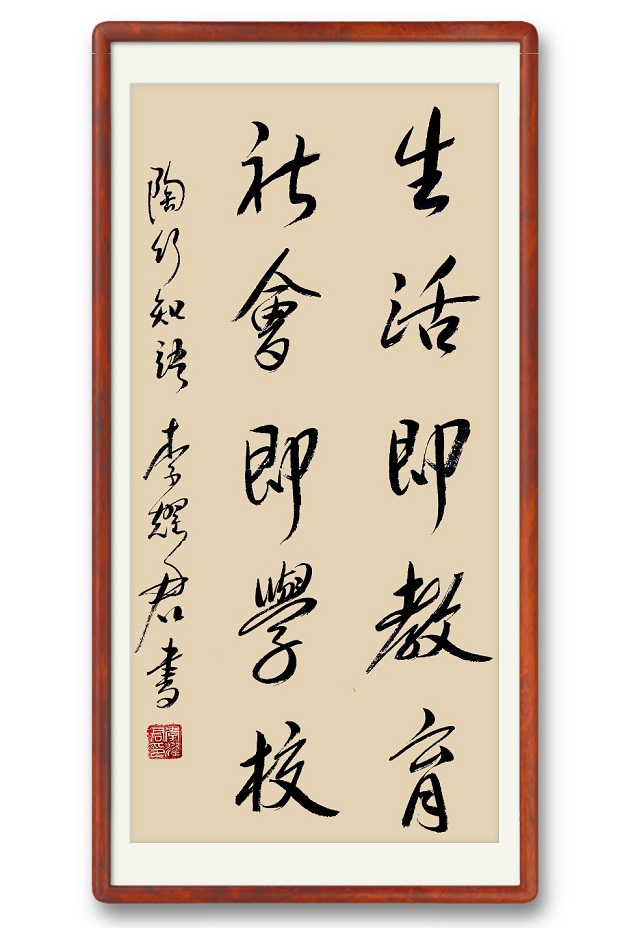 生活即教育
社會即學校
陶行知語 李耀君書